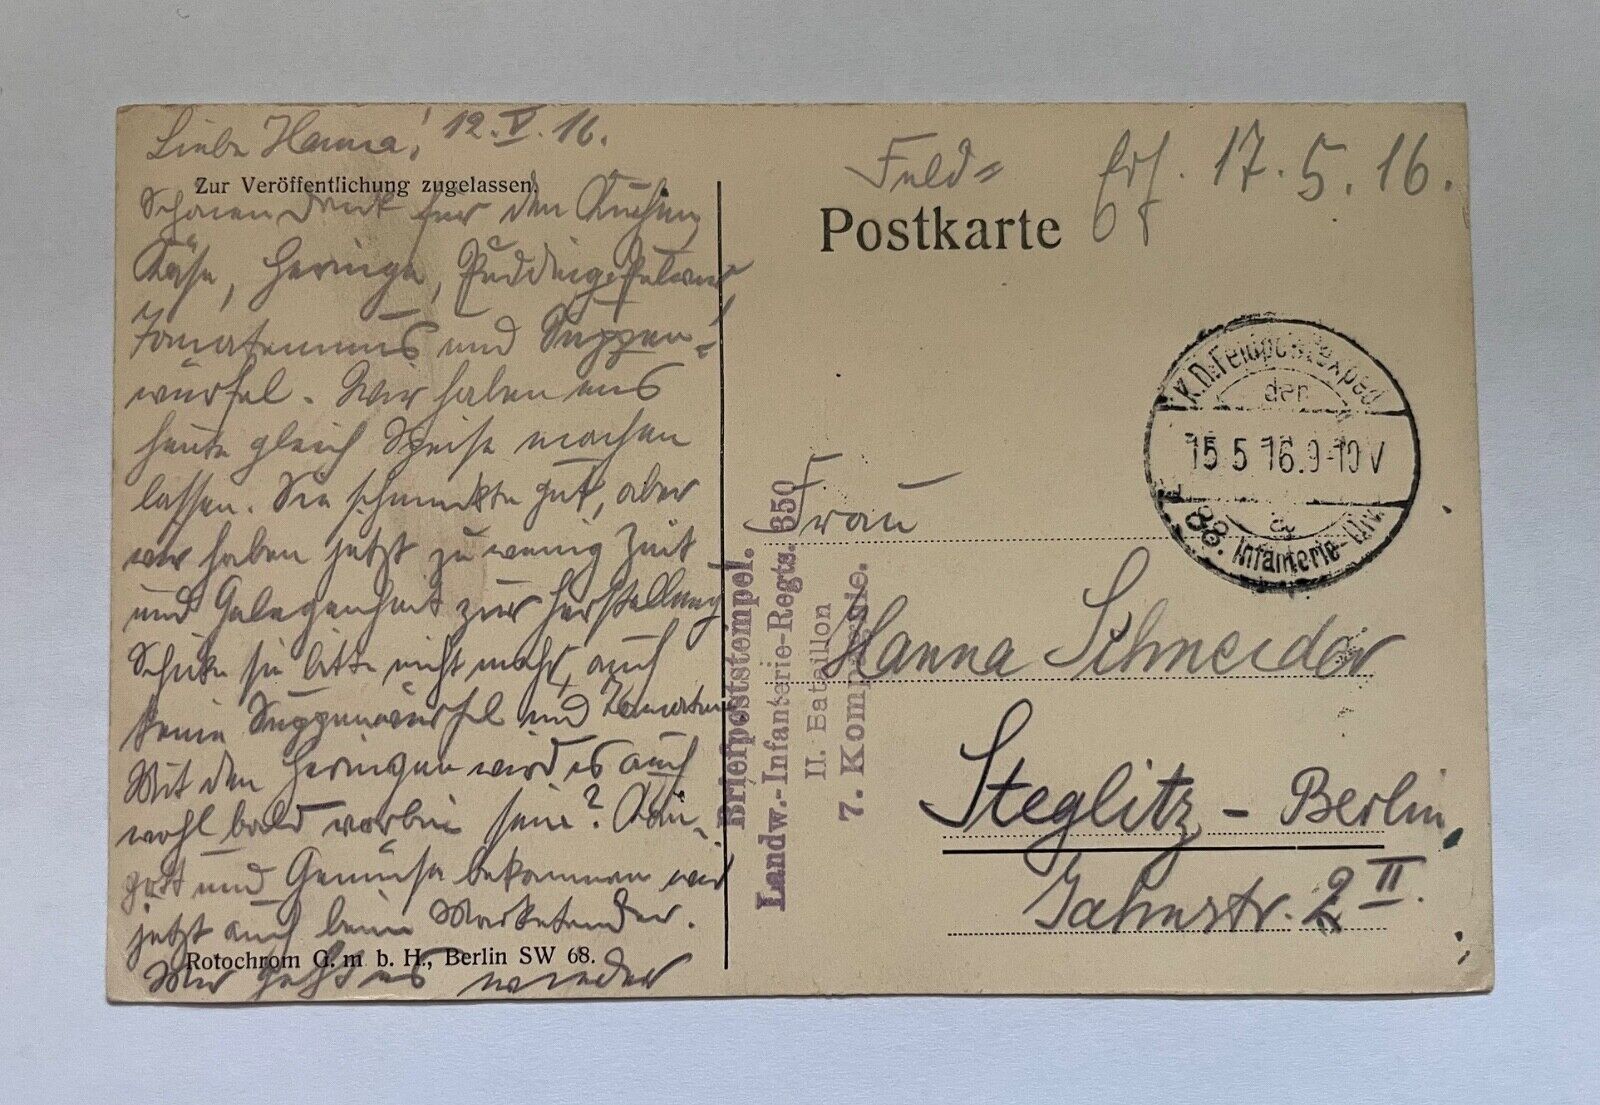 Liebe Hanna! 12.V.16.
Zur Veröffentlichung zugelassen.
Schönen Dank für den Kuchen,
Käse, Heringe, Puddingpulver,
Tomatenmus und Suppen-
würfel. Wir haben uns
heute gleich Speise machen
lassen. Sie schmeckte gut, aber
wir haben jetzt zu wenig Zeit
und Gelegenheit zur Herstellung
Schicke sie bitte nicht mehr, auch
keine Suppenwürfel und Tomaten
Mit den Heringen wird es auch
wohl bald vorbei sein?
und Gemüse bekommen wir
jetzt auch beim Marketender.
Rotochrom G. m. b. H., Berlin SW 68.
Mir geht es wieder
Feld=
Postkarte
Erh. 17.5.16.
K.D. Feldpostexped
der
15.5.16.9-10V
88. Infanterie-Div.
Briefpoststempel.
Landw.-Infanterie-Regts. 350
II. Bataillon
7. Kompagnie.
Frau
Hanna Schneider
Steglitz - Berlin,
Jahnstr. 2 II.